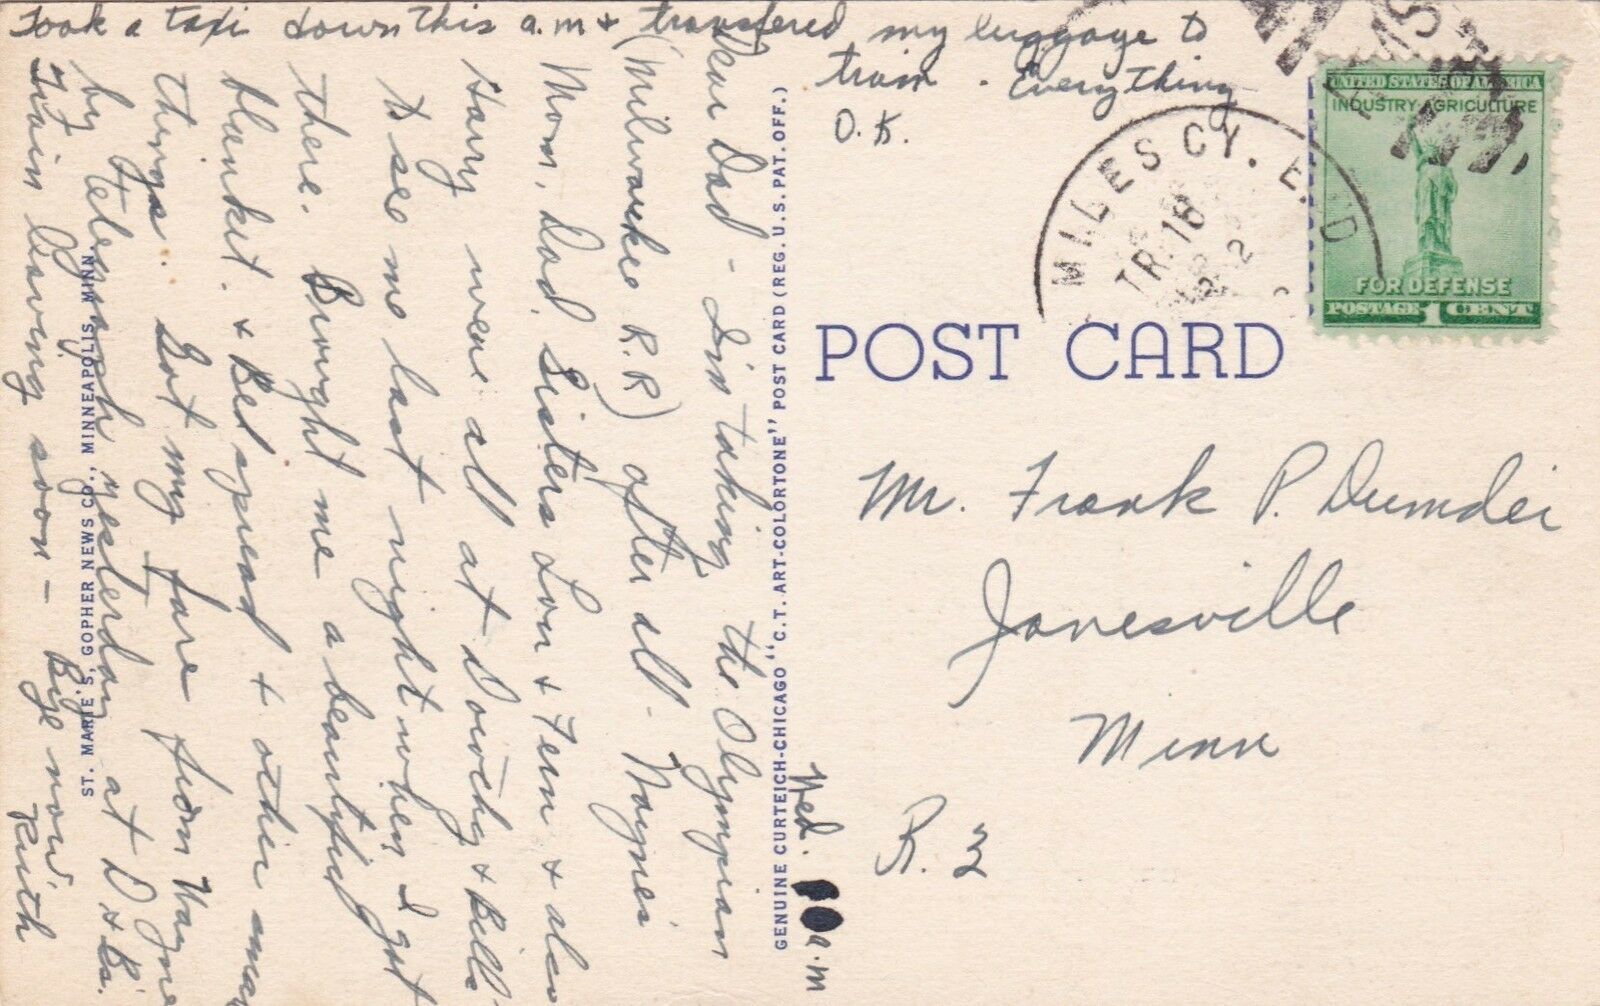 Wed. 10 a.m
Dear Dad - I'm taking the Olympian
(Milwaukee R.R) after all - Wayne's
Mom, Dad, Sisters Lou & Fern & also
Harry were all at Dorothy & Bills
to see me last night when I got
there. Brought me a beautiful
blanket & Bed spread & other small
things. Got my fare from Wayne
by telegraph yesterday at D & B's.
Train leaving soon - Bye now,
Ruth
Took a taxi down this a.m & transferred my luggage to
train. Everything
O.K.
ST. MARIE'S, GOPHER NEWS CO., MINNEAPOLIS, MINN.
GENUINE CURTEICH-CHICAGO "C.T. ART-COLORTONE" POST CARD (REG. U.S. PAT. OFF.)
MILES CY. E D
TR. 18
POST CARD
UNITED STATES OF AMERICA
INDUSTRY AGRICULTURE
FOR DEFENSE
POSTAGE 1 CENT
Mr. Frank P. Dumdei
Janesville
Minn
R. 3